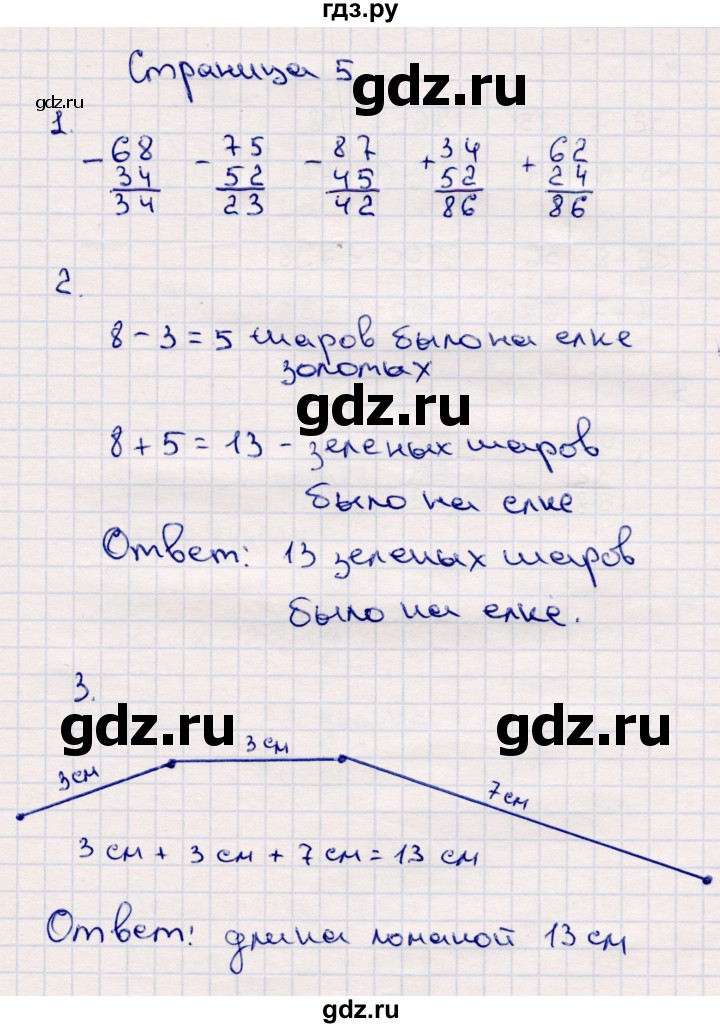 гдз.ру
Страница 5
gdz.ru
gdz.ru
1.
- 68 - 75 - 87 + 34 + 62
34 52 45 52 24
34 23 42 86 86
2.
8 - 3 = 5 шаров было на елке
золотых
gdz.ru
8 + 5 = 13 - зеленых шаров
было на елке
Ответ: 13 зеленых шаров
было на елке.
3.
gdz.ru gdz.ru
3 см 3 см 7 см
3 см + 3 см + 7 см = 13 см
Ответ: длина ломаной 13 см
gdz.ru